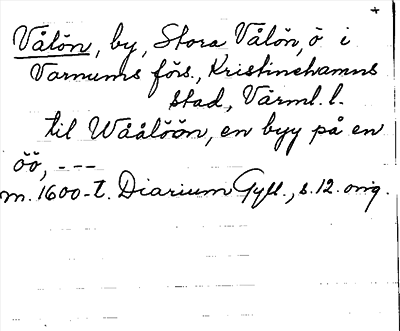 Vålön, by, Stora Vålön, ö i
Varnums förs., Kristinehamns
stad, Värml. l.
til Wåålöön, en byy på en
öö, ---
m. 1600-t. Diarium Gyll., s. 12. orig.